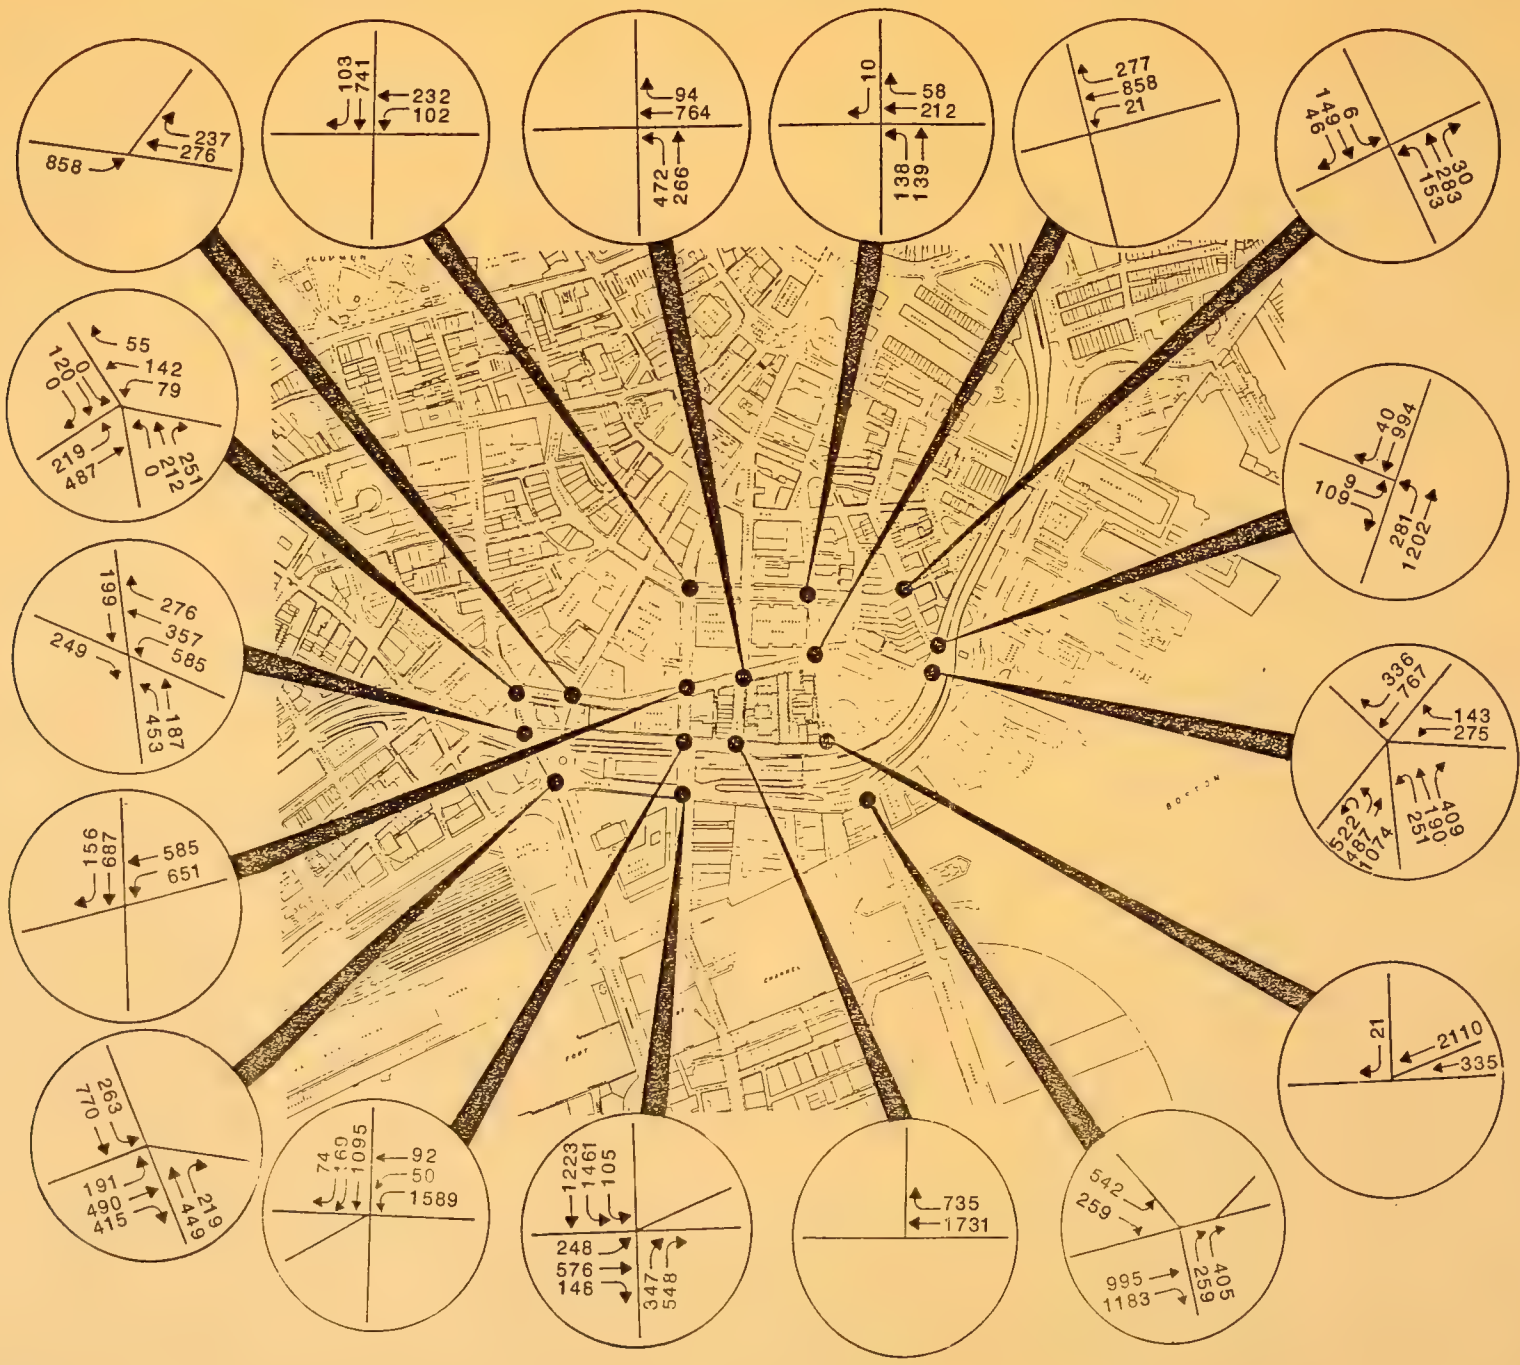 237
276
858
103
741
232
102
94
764
472
266
10
58
212
138
139
277
858
21
6
149
46
30
283
153
55
142
79
0
0
120
0
219
487
0
212
251
40
994
9
109
281
1202
199
276
357
585
249
453
187
336
767
143
275
522
487
1074
251
190
409
BOSTON
156
687
585
651
CHANNEL
FORT
21
2110
335
263
770
191
490
415
449
219
74
169
1095
92
50
1589
1223
1461
105
248
576
146
347
548
735
1731
542
259
995
1183
259
405